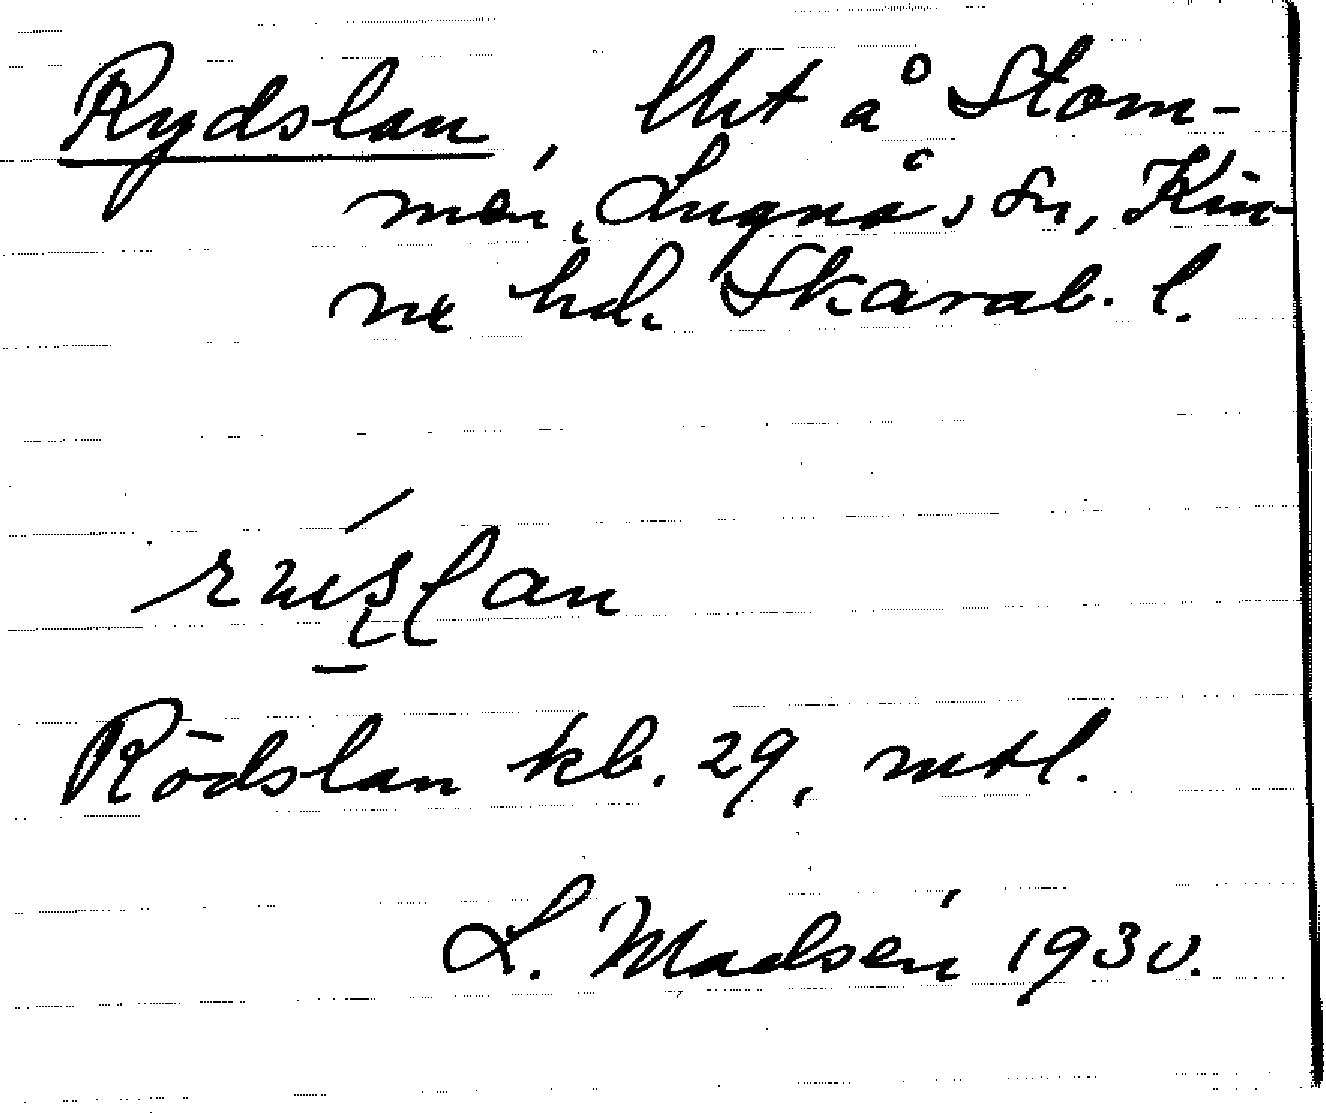 Rydslan, lht å Stom-
mén, Lugnås sn, Kin-
ne hd. Skarab. l.
Rödslan kb. 29, mtl.
L. Madsén 1930.